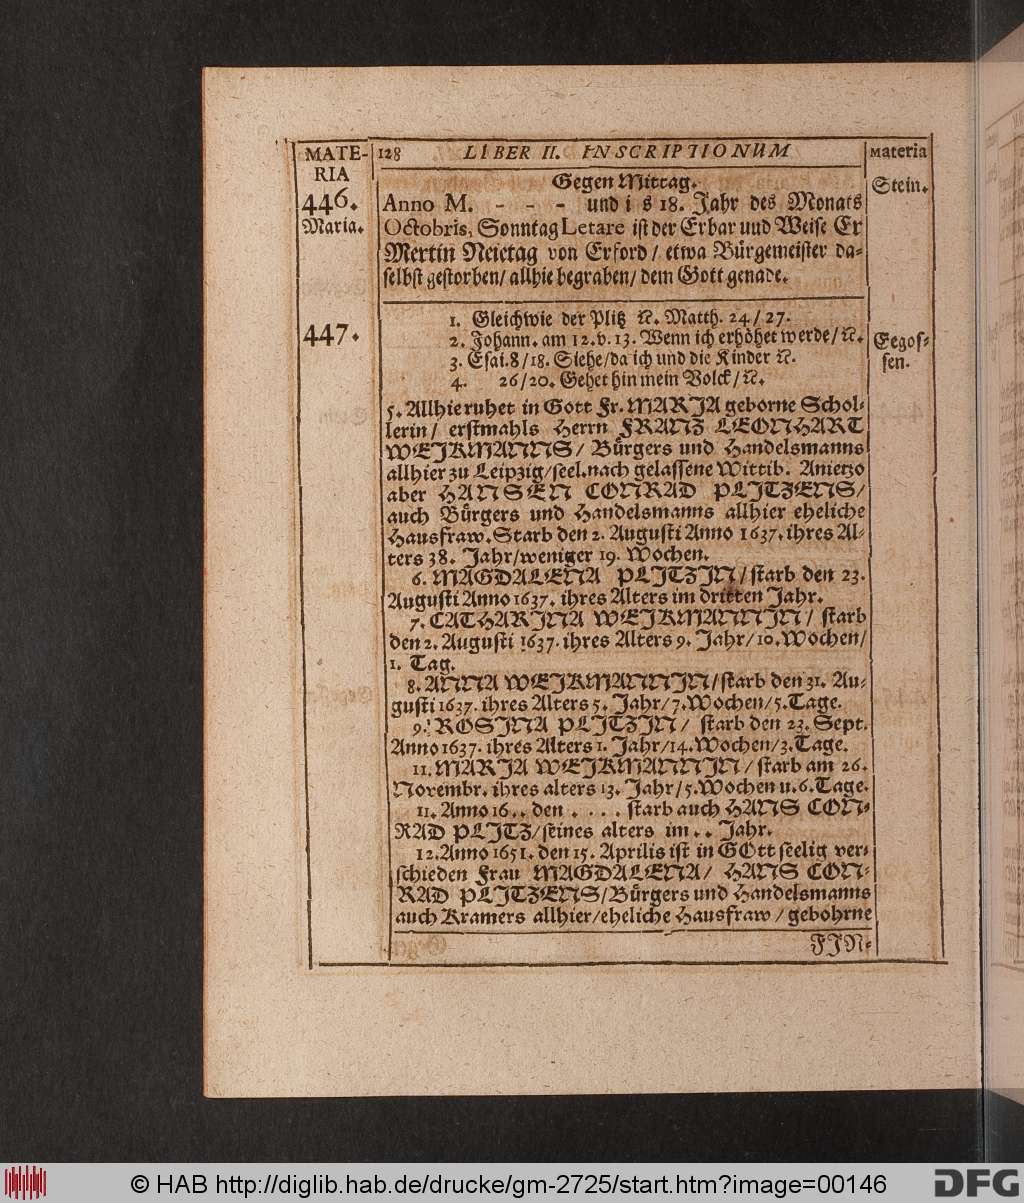 MATE-
RIA
128 LIBER II. INSCRIPTIONUM
Materia
Gegen Mittag.
446.
Maria.
Stein.
Anno M. - - - und i s 18. Jahr des Monats
Octobris, Sonntag Letare ist der Erbar uud Weise Er
Mertin Neietag von Erford / etwa Bürgemeister da-
selbst gestorben / allhie begraben / dem Gott genade.
447.
Eegos-
sen.
1. Gleichwie der Plitz ꝛc. Matth. 24 / 27.
2. Johann. am 12. v. 13. Wenn ich erhöhet werde / ꝛc.
3. Esai. 8 / 18. Siehe / da ich und die Kinder ꝛc.
4. 26 / 20. Gehet hin mein Volck / ꝛc.
5. Allhie ruhet in Gott Fr. MARJA geborne Schol-
lerin / erstmahls Herrn FRANZ LEONHART
WEJKMANNS / Bürgers und Handelsmanns
allhier zu Leipzig / seel. nach gelassene Wittib. Anietzo
aber HANSEN CONRAD PLJTZENS /
auch Bürgers und Handelsmanns allhier eheliche
Hausfraw. Starb den 2. Augusti Anno 1637. ihres Al-
ters 38. Jahr / weniger 19. Wochen.
6. MAGDALENA PLJTZJN / starb den 23.
Augusti Anno 1637. ihres Alters im dritten Jahr.
7. CATHARJNA WEJKMANNJN / starb
den 2. Augusti 1637. ihres Alters 9. Jahr / 10. Wochen /
1. Tag.
8. ANNA WEJKMANNJN / starb den 31. Au-
gusti 1637. ihres Alters 5. Jahr / 7. Wochen / 5. Tage.
9. ROSJNA PLJTZJN / starb den 23. Sept.
Anno 1637. ihres Alters 1. Jahr / 14. Wochen / 3. Tage.
11. MARJA WEJKMANNJN / starb am 26.
Novembr. ihres alters 13. Jahr / 5. Wochen u. 6. Tage.
11. Anno 16.. den . . . . starb auch HANS CON-
RAD PLJTZ / seines alters im .. Jahr.
12. Anno 1651. den 15. Aprilis ist in GOtt seelig ver-
schieden Frau MAGDALENA / HANS CON-
RAD PLJTZENS / Bürgers und Handelsmanns
auch Kramers allhier / eheliche Hausfraw / gebohrne
FJN-
© HAB http://diglib.hab.de/drucke/gm-2725/start.htm?image=00146
DFG